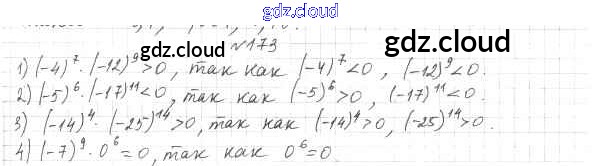 gdz.cloud
№173 gdz.cloud
1) (-4)⁷·(-12)⁹>0, так как (-4)⁷<0, (-12)⁹<0.
2) (-5)⁶·(-17)¹¹<0, так как (-5)⁶>0, (-17)¹¹<0.
3) (-14)⁴·(-25)¹⁴>0, так как (-14)⁴>0, (-25)¹⁴>0.
4) (-7)⁹·0⁶=0, так как 0⁶=0.
gdz.cloud